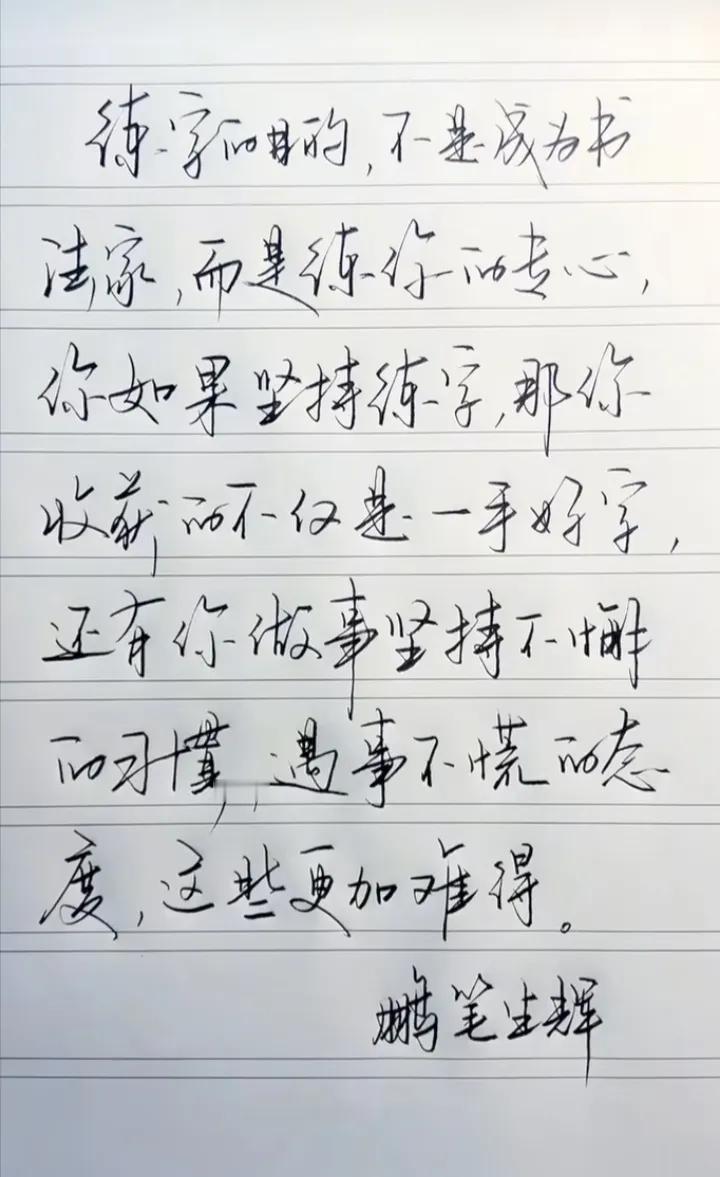 练字的目的,不是成为书
法家,而是练你的专心,
你如果坚持练字,那你
收获的不仅是一手好字,
还有你做事坚持不懈
的习惯,遇事不慌的态
度,这些更加难得。
鹏笔生辉